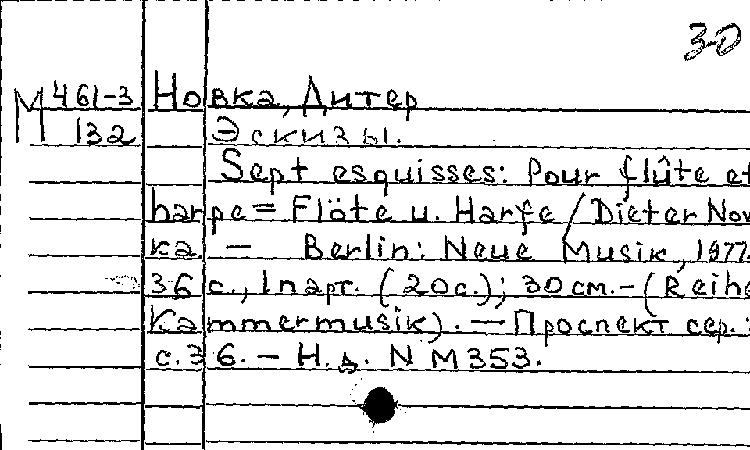 30
М 461-3 Новка, Дитер
132 Эскизы.
Sept esquisses: Pour flûte et
harpe = Flöte u. Harfe / Dieter Nov
ka. — Berlin: Neue Musik, 1977.
36 с., 1 парт. (20 с.); 30 см. - (Reihe
Kammermusik). — Проспект сер.:
с. 36. - Н. д. N M 353.